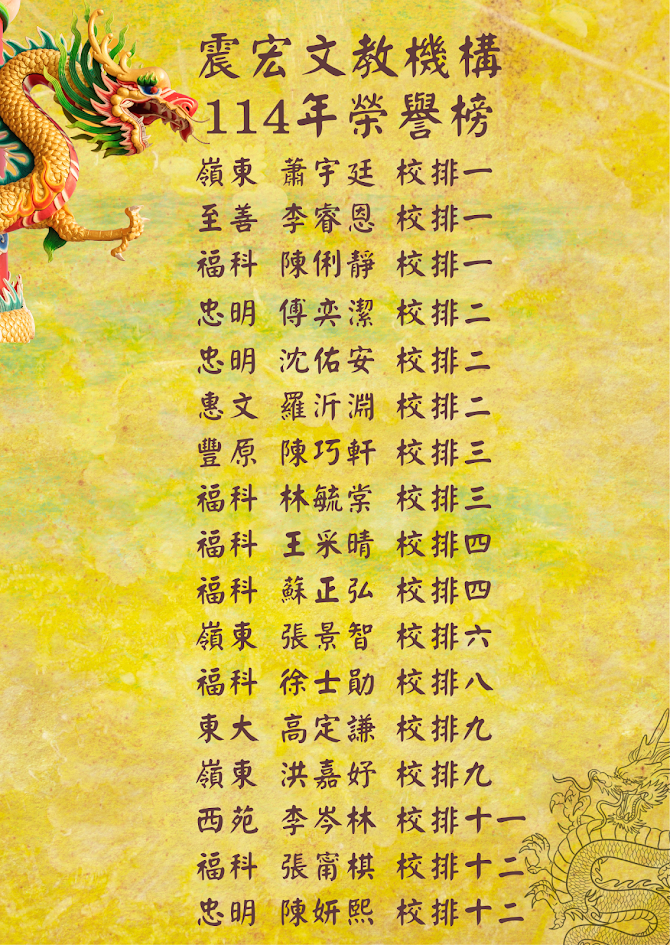 震宏文教機構
114年榮譽榜
嶺東 蕭宇廷 校排一
至善 李睿恩 校排一
福科 陳俐靜 校排一
忠明 傅奕潔 校排二
忠明 沈佑安 校排二
惠文 羅沂淵 校排二
豐原 陳巧軒 校排三
福科 林毓棠 校排三
福科 王采晴 校排四
福科 蘇正弘 校排四
嶺東 張景智 校排六
福科 徐士勛 校排八
東大 高定謙 校排九
嶺東 洪嘉妤 校排九
西苑 李岑林 校排十一
福科 張甯棋 校排十二
忠明 陳妍熙 校排十二